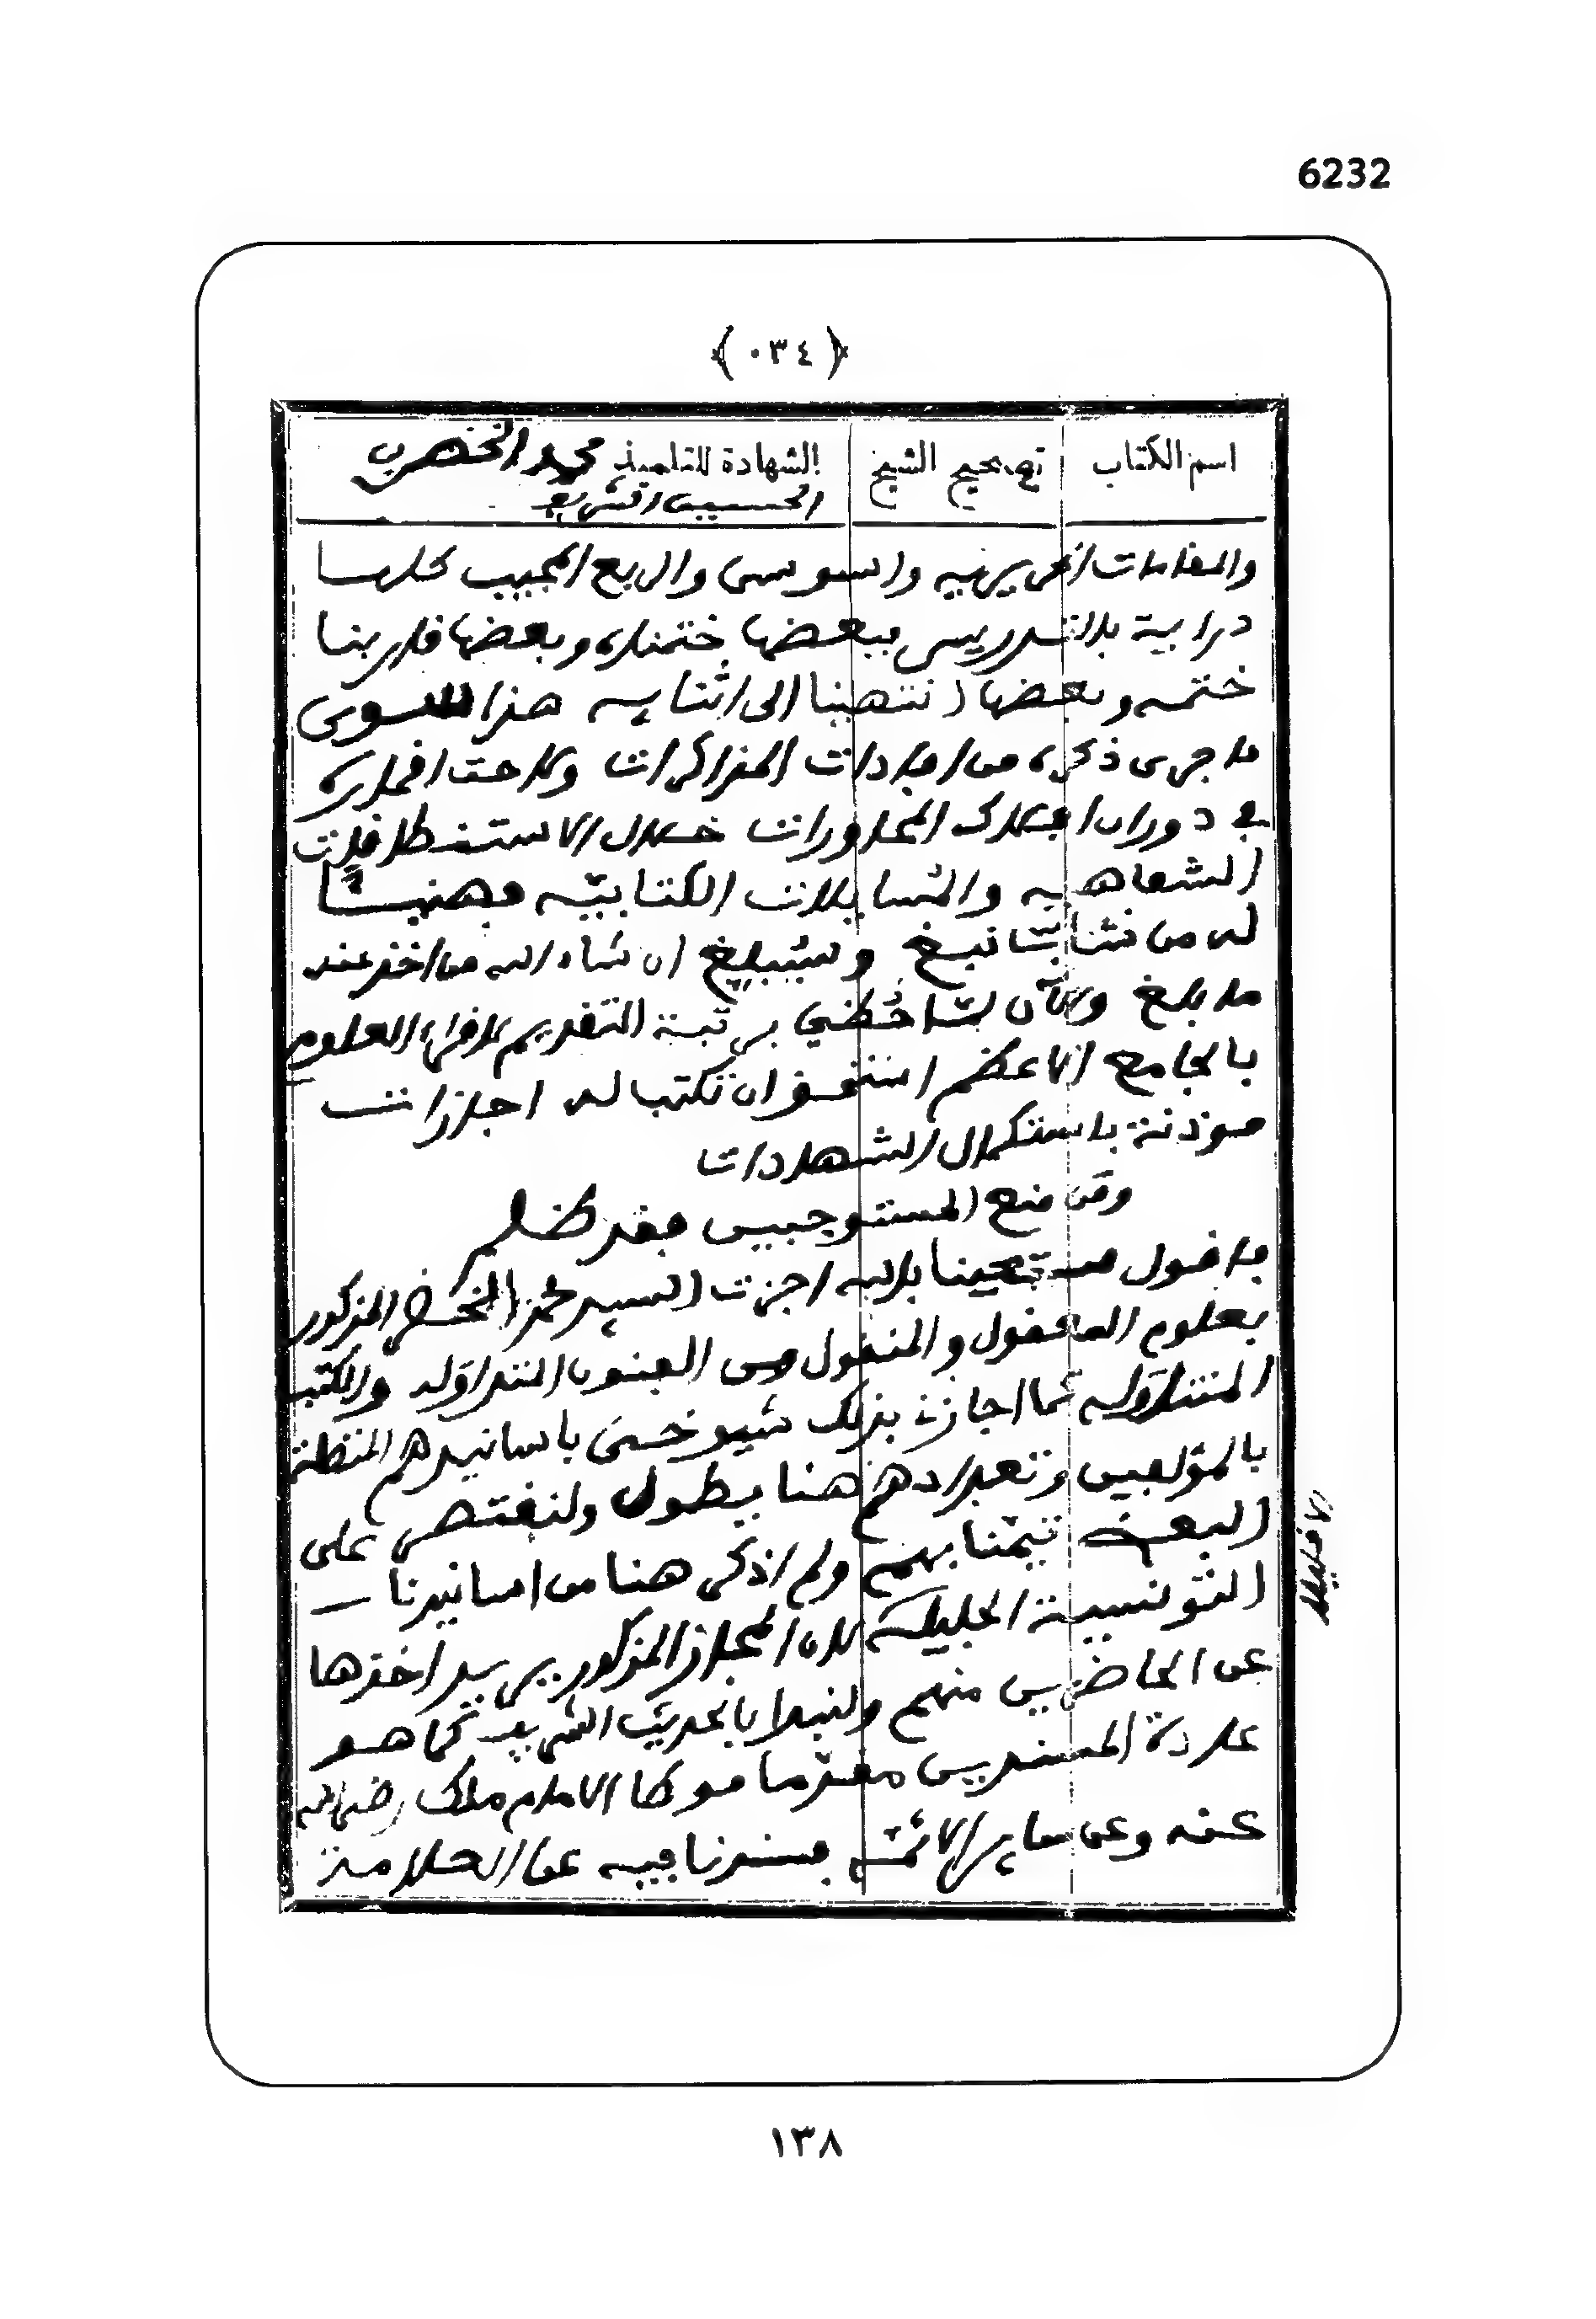 6232
﴿٠٣٤﴾
اسم الكتاب تصحيح الشيخ الشهادة للتلميذ محمد الخضر بن
الحسين الشريف
والمقامات الحريرية والسوسي والربع المجيب كلها
دراية بالتدريس فبعضها ختمناه وبعضها قاربنا
ختمه وبعضها انتهينا الى اثنايه هذا سوى
ما جرى ذكره من افادات المذاكرات ولاحت اقماره
في دوران افلاك المحاورات خلال الاستنطاقات
الشفاهية والمسايلات الكتابيّة فهنيئًا
له من نشا نبغ وسيبلغ ان شاء الله من اخذ عنه
ما بلغ والآن لمّا حُظي برتبة التقديم لاقراء العلوم
بالجامع الاعظم استحق ان نكتب له اجازات
موذنة باستكمال الشهادات
ومن منح المستوجبين فقد ظلم
فاقول مستعينا بالله اجزت السيد محمد الخضر المذكور
بعلوم المعقول والمنقول من الفنون المتداوَلة والكتب
المتناوَلة كما اجازني بذلك شيوخي باسانيدهم المتصلة
بالمؤلفين وتعدادهم هنا يطول ولنقتصر على
البعض تيمّنا بهم ولم اذكر هنا من اسانيدنا
التونسية الجليلة لان المجاز المذكور يريد اخذها
عن الحاضرين منهم ولنبدا بالحديث الشريف كما هو
عادة المسندين مقدّما موطا الامام ملك رضي الله
عنه وعن ساير الائمّة بسندنا فيه عن العلامة
١٣٨